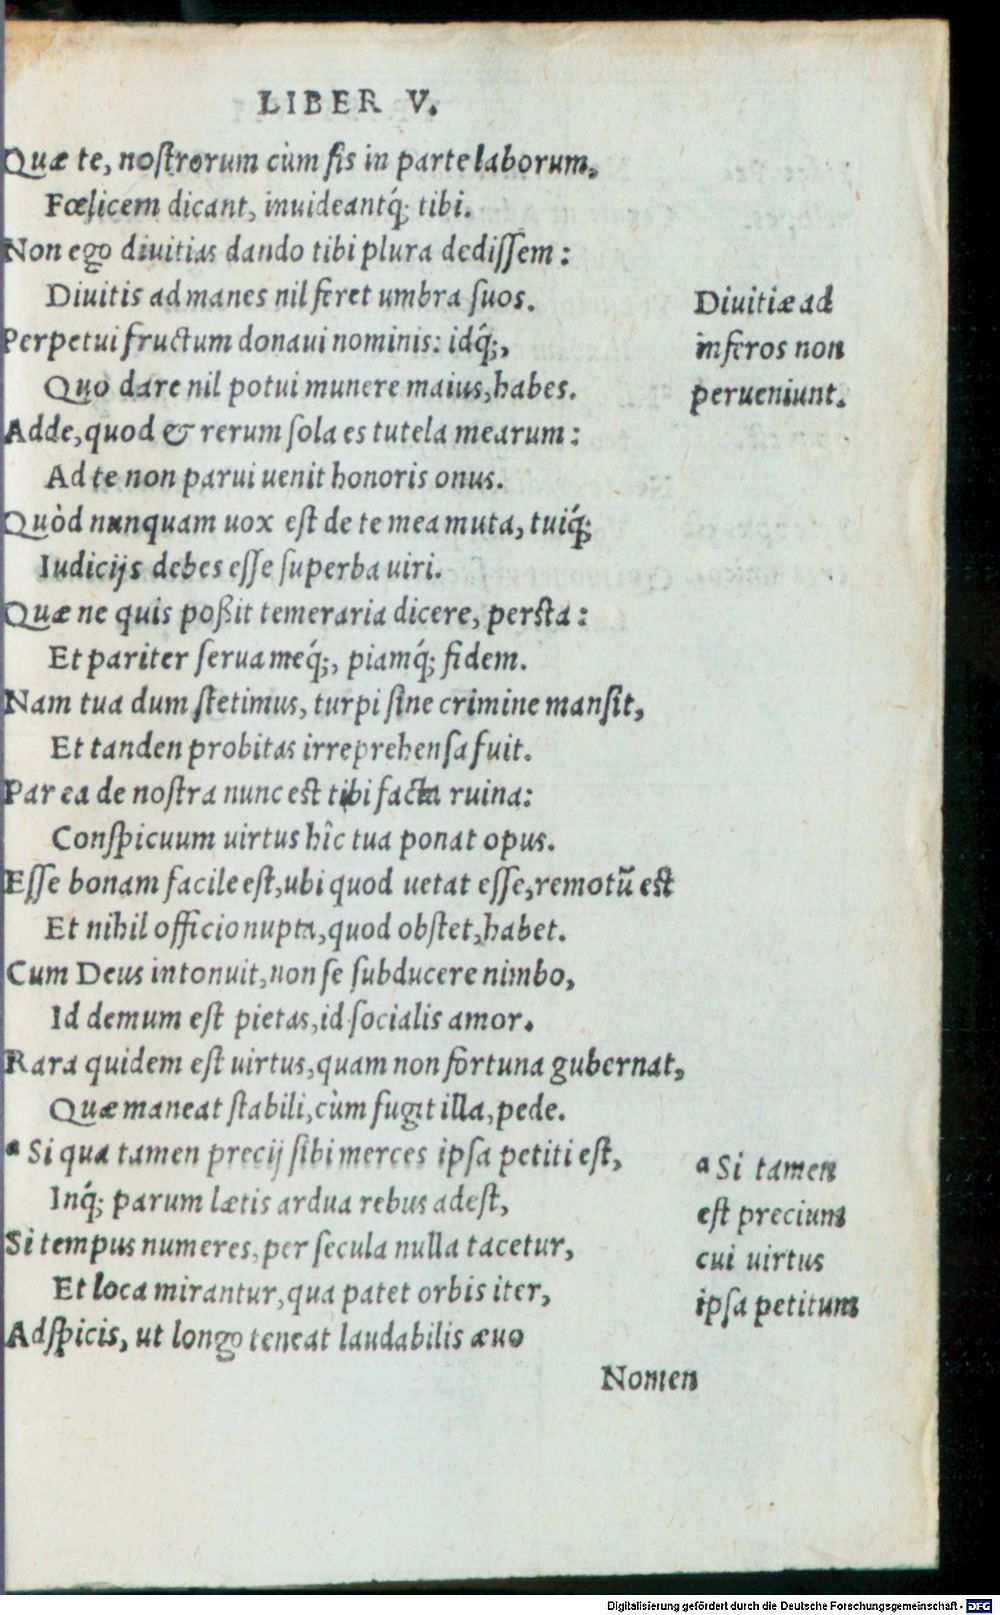 LIBER V.
Quæ te, nostrorum cùm sis in parte laborum,
Fœlicem dicant, inuideantq́; tibi.
Non ego diuitias dando tibi plura dedissem:
Diuitis ad manes nil feret umbra suos.
Diuitiæ ad
Perpetui fructum donaui nominis: idq́;,
inferos non
Quo dare nil potui munere maius, habes.
perueniunt.
Adde, quod & rerum sola es tutela mearum:
Ad te non parui uenit honoris onus.
Quòd nunquam uox est de te mea muta, tuiq́;
Iudicijs debes esse superba uiri.
Quæ ne quis poßit temeraria dicere, persta:
Et pariter serua meq́;, piamq́; fidem.
Nam tua dum stetimus, turpi sine crimine mansit,
Et tanden probitas irreprehensa fuit.
Par ea de nostra nunc est tibi facta ruina:
Conspicuum uirtus hîc tua ponat opus.
Esse bonam facile est, ubi quod uetat esse, remotū est
Et nihil officio nupta, quod obstet, habet.
Cum Deus intonuit, non se subducere nimbo,
Id demum est pietas, id socialis amor.
Rara quidem est uirtus, quam non fortuna gubernat,
Quæ maneat stabili, cùm fugit illa, pede.
ᵃ Si qua tamen precij sibi merces ipsa petiti est,
ᵃ Si tamen
Inq́; parum lætis ardua rebus adest,
est precium
Si tempus numeres, per secula nulla tacetur,
cui uirtus
Et loca mirantur, qua patet orbis iter,
ipsa petitum
Adspicis, ut longo teneat laudabilis æuo
Nomen
Digitalisierung gefördert durch die Deutsche Forschungsgemeinschaft - DFG